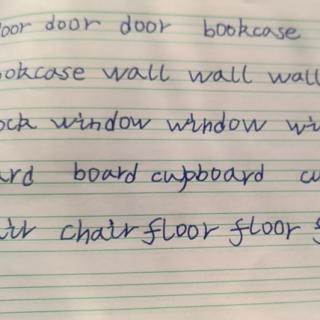 oor door door bookcase
ookcase wall wall wall
ock window window wi
ard board cupboard cu
air chair floor floor